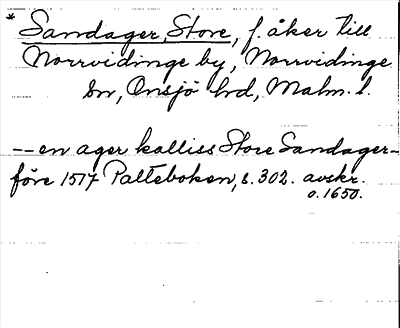 * Sandager, Store, f. åker till
Norrvidinge by, Norrvidinge
sn, Onsjö hd, Malm. l.
-- en ager kalliss Store Sandager --
före 1517 Palteboken, s. 302. avskr.
o. 1650.